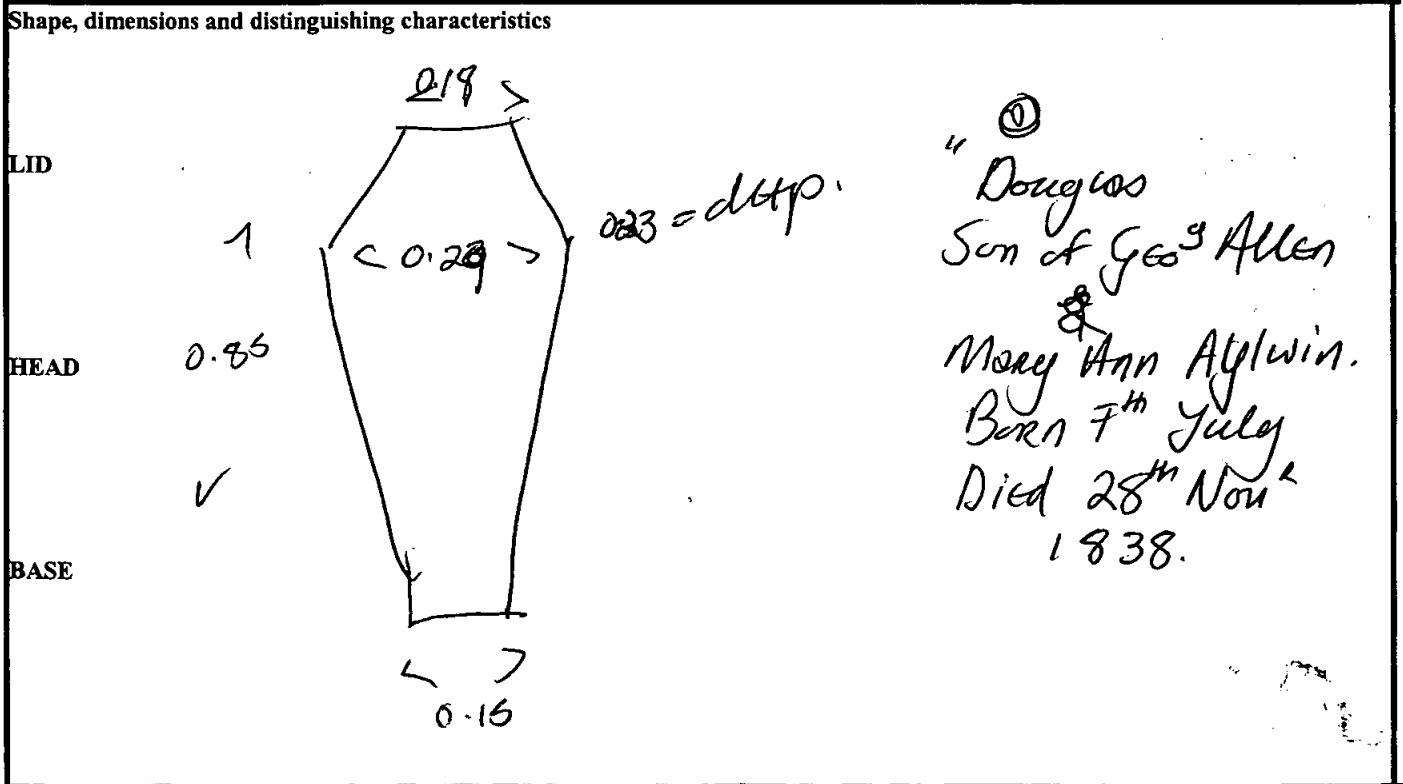 Shape, dimensions and distinguishing characteristics
0.18
LID
0.29
HEAD
0.85
BASE
0.15
"
Douglas
Son of Geo^g Allen
&
Mary Ann Aylwin.
Born 7th July
Died 28th Nov^r
1838.